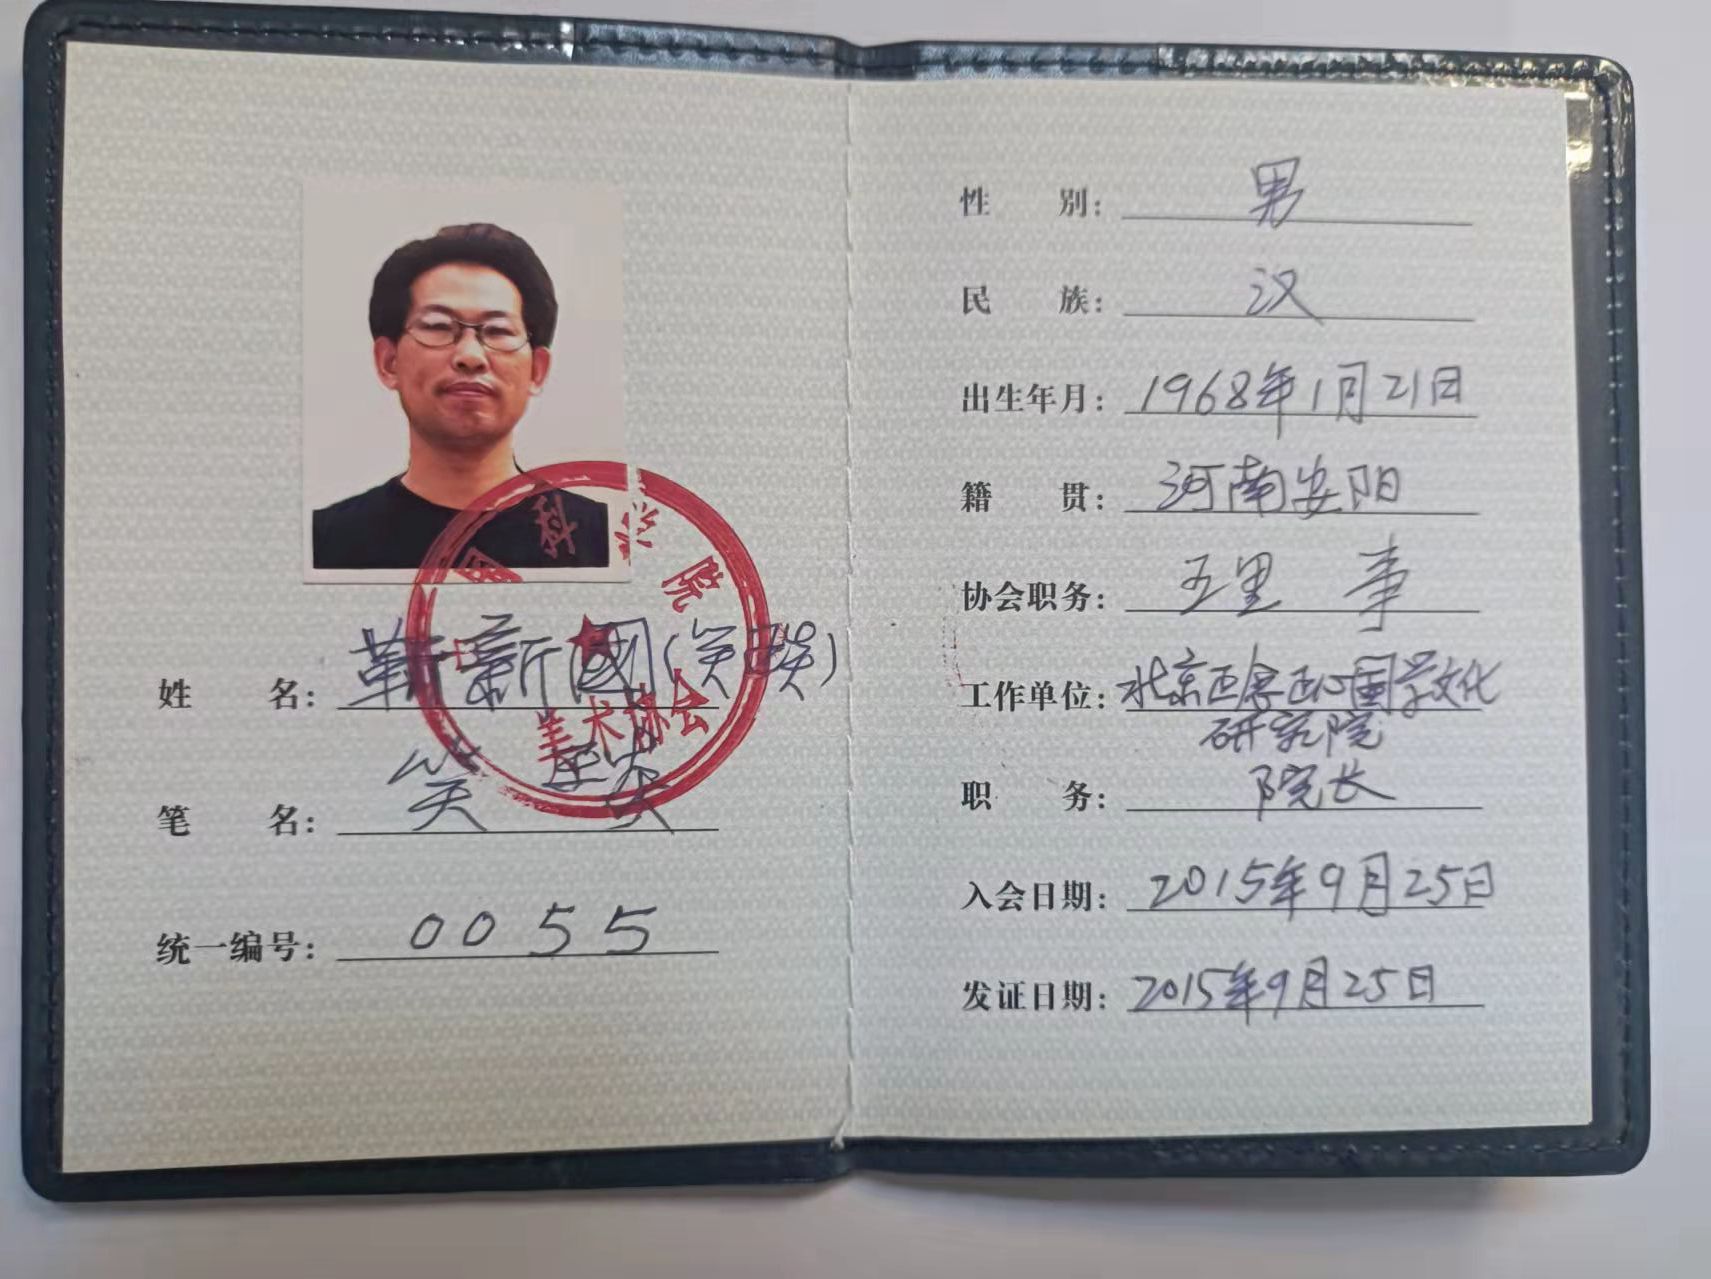 中国科学院
美术协会
姓名：靳新國（笑琰）
笔名：笑琰
统一编号：0055
性别：男
民族：汉
出生年月：1968年1月21日
籍贯：河南安阳
协会职务：理事
工作单位：北京正念正心国学文化
研究院
职务：院长
入会日期：2015年9月25日
发证日期：2015年9月25日